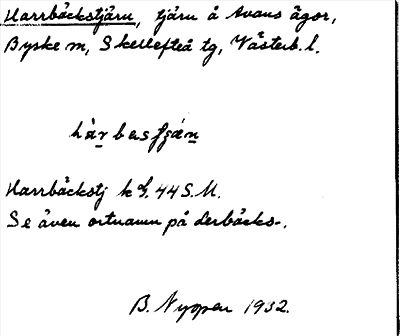 Harrbäckstjärn, tjärn å Avans ägor,
Byske sn, Skellefteå tg, Västerb. l.
Harrbäckstj k bl. 44 S.V.
Se även ortnamn på Harrbäcks-.
B. Nygren 1932.